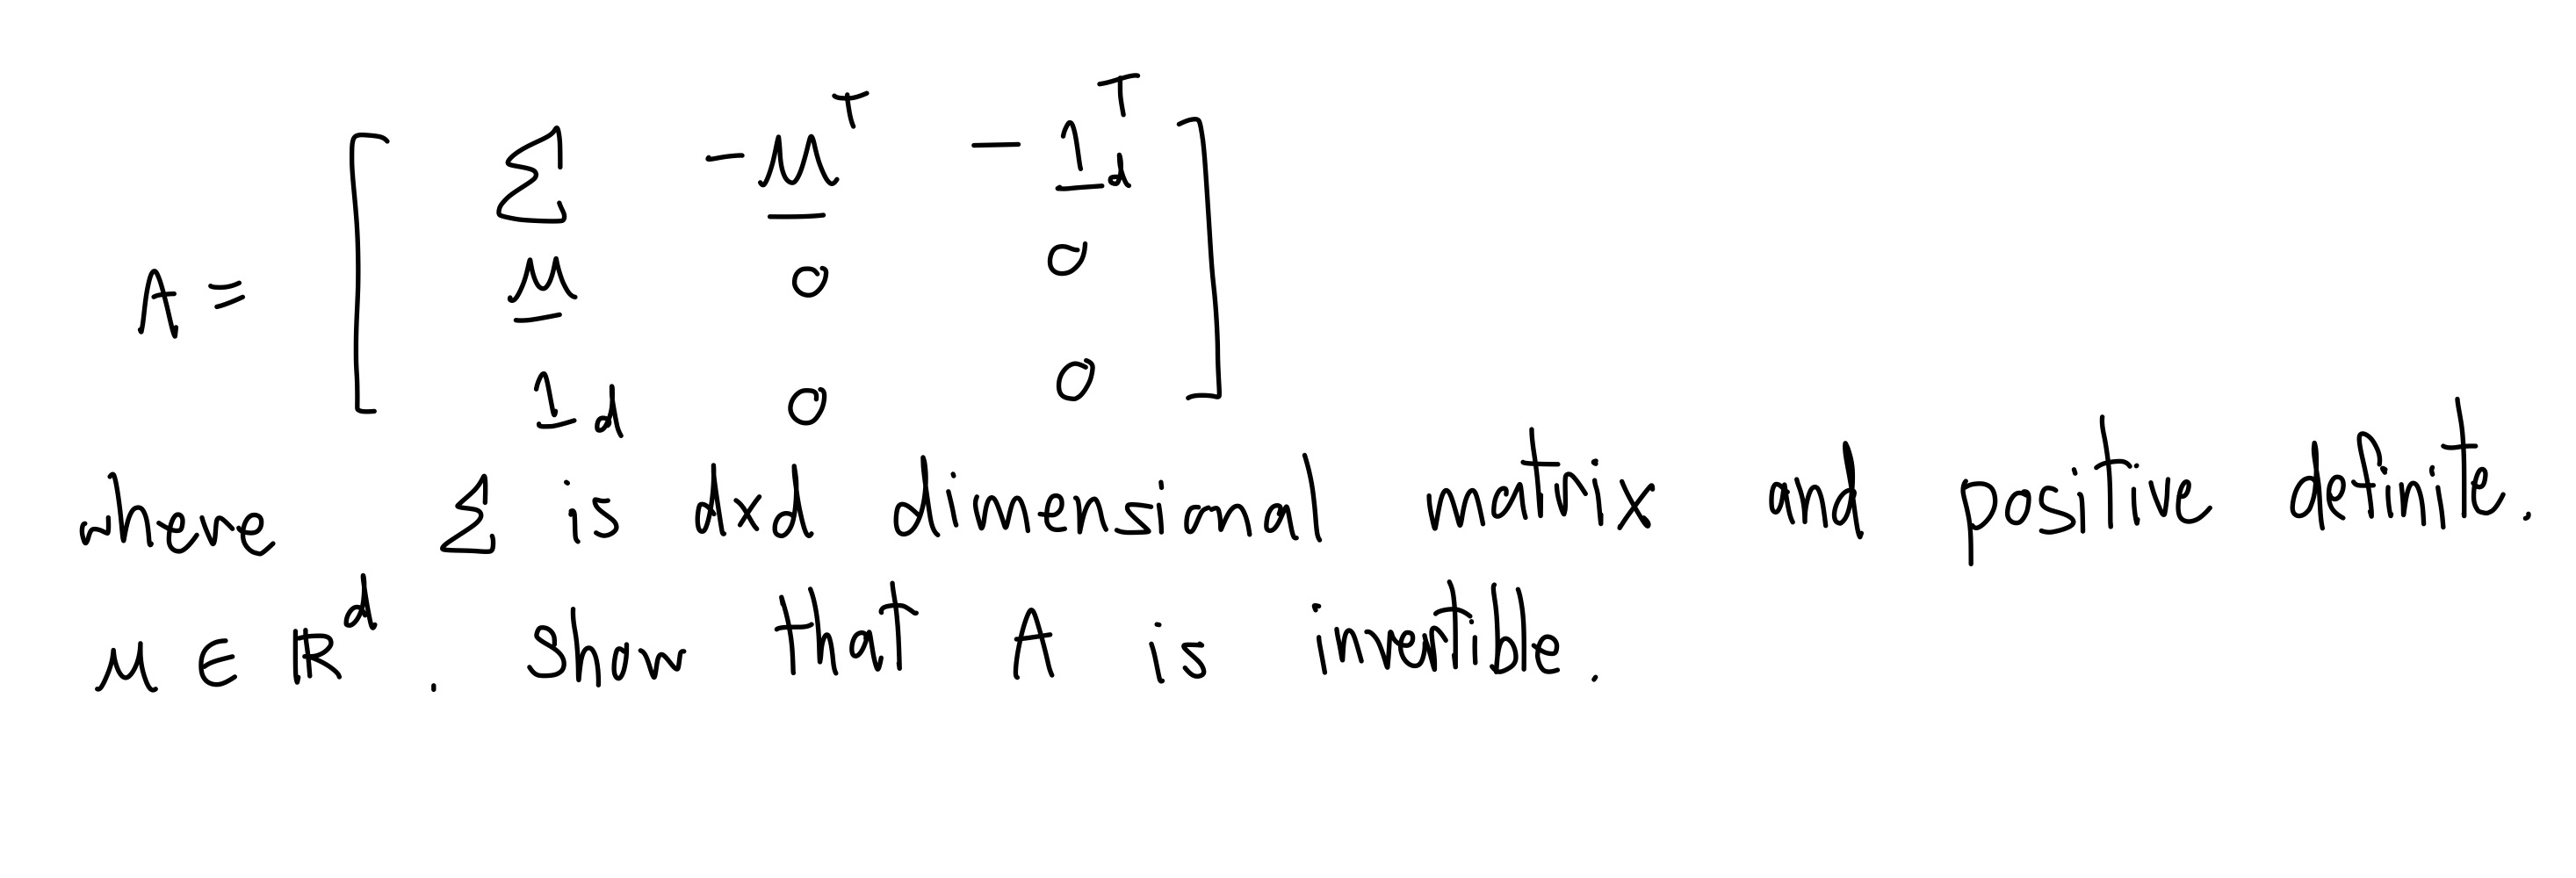 A = [ Σ -μ^T -1_d^T
μ 0 0
1_d 0 0 ]
where Σ is dxd dimensional matrix and positive definite.
μ ∈ ℝ^d . Show that A is invertible.